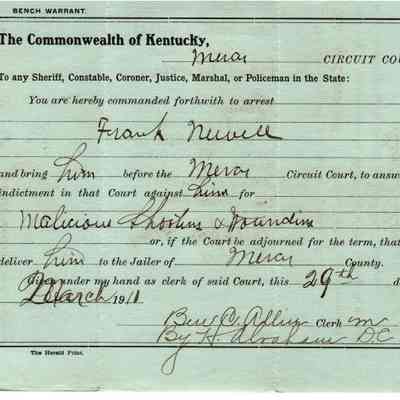 BENCH WARRANT.
The Commonwealth of Kentucky,
Mercer CIRCUIT COU
To any Sheriff, Constable, Coroner, Justice, Marshal, or Policeman in the State:
You are hereby commanded forthwith to arrest
Frank Newell
and bring him before the Mercer Circuit Court, to answ
indictment in that Court against him for
Malicious Shooting & Wounding
or, if the Court be adjourned for the term, that
deliver him to the Jailer of Mercer County.
Given under my hand as clerk of said Court, this 29th d
March 1911
Ben C Allin Clerk m
By H. Abraham D.C
The Herald Print.